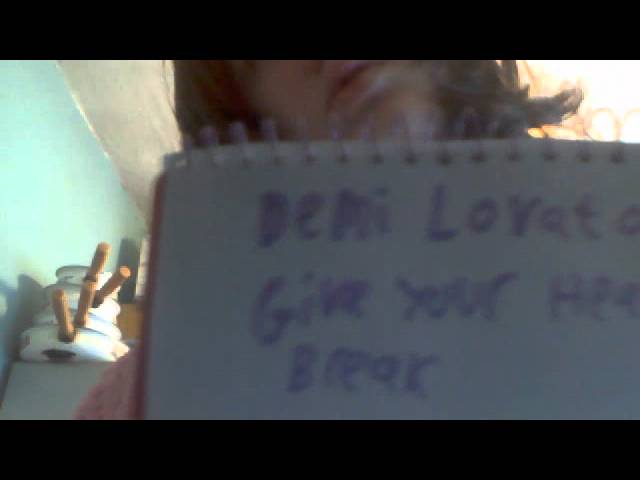 Demi Lovato
Give Your Hea
Break